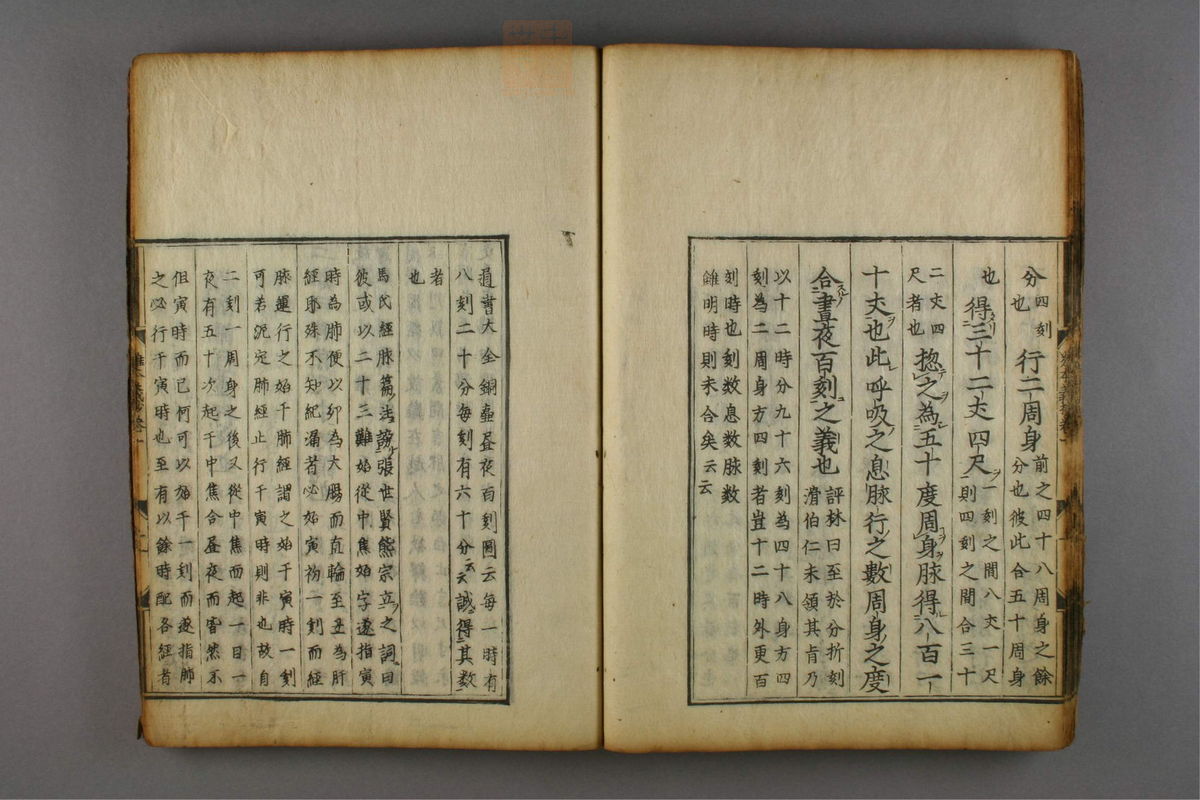 分四刻行二周身前之四十八周身之餘
分也分也彼此合五十周身
也得三十二丈四尺一刻之間八丈一尺
則四刻之間合三十
二丈四尺者也惣之為五十度周身脉得八百一
十丈也此呼吸之息脉行之數周身之度
合晝夜百刻之義也評林曰至於分折刻
滑伯仁未領其肯乃
以十二時分九十六刻為四十八身方四
刻為二周身方四刻者豈十二時外更百
刻時也刻数息数脉数
雖明時則未合矣云云
道書大全銅壷昼夜百刻圖云每一時有
八刻二十分每刻有六十分云云誠得其数
者
也
馬氏經脉篇註謗張世賢熊宗立之詞曰
彼或以二十三難始從中焦始字遂指寅
時為肺便以卯為大腸而直輪至丑為肝
經耶殊不知紀漏者必始寅初一刻而經
脉運行之始于肺經謂之始于寅時一刻
可若泥定肺經止行于寅時則非也故自
二刻一周身之後又從中焦而起一日一
夜有五十次起于中焦合昼夜而皆然不
但寅時而已何可以始于一刻而遂指肺
之必行于寅時也至有以餘時配各經者